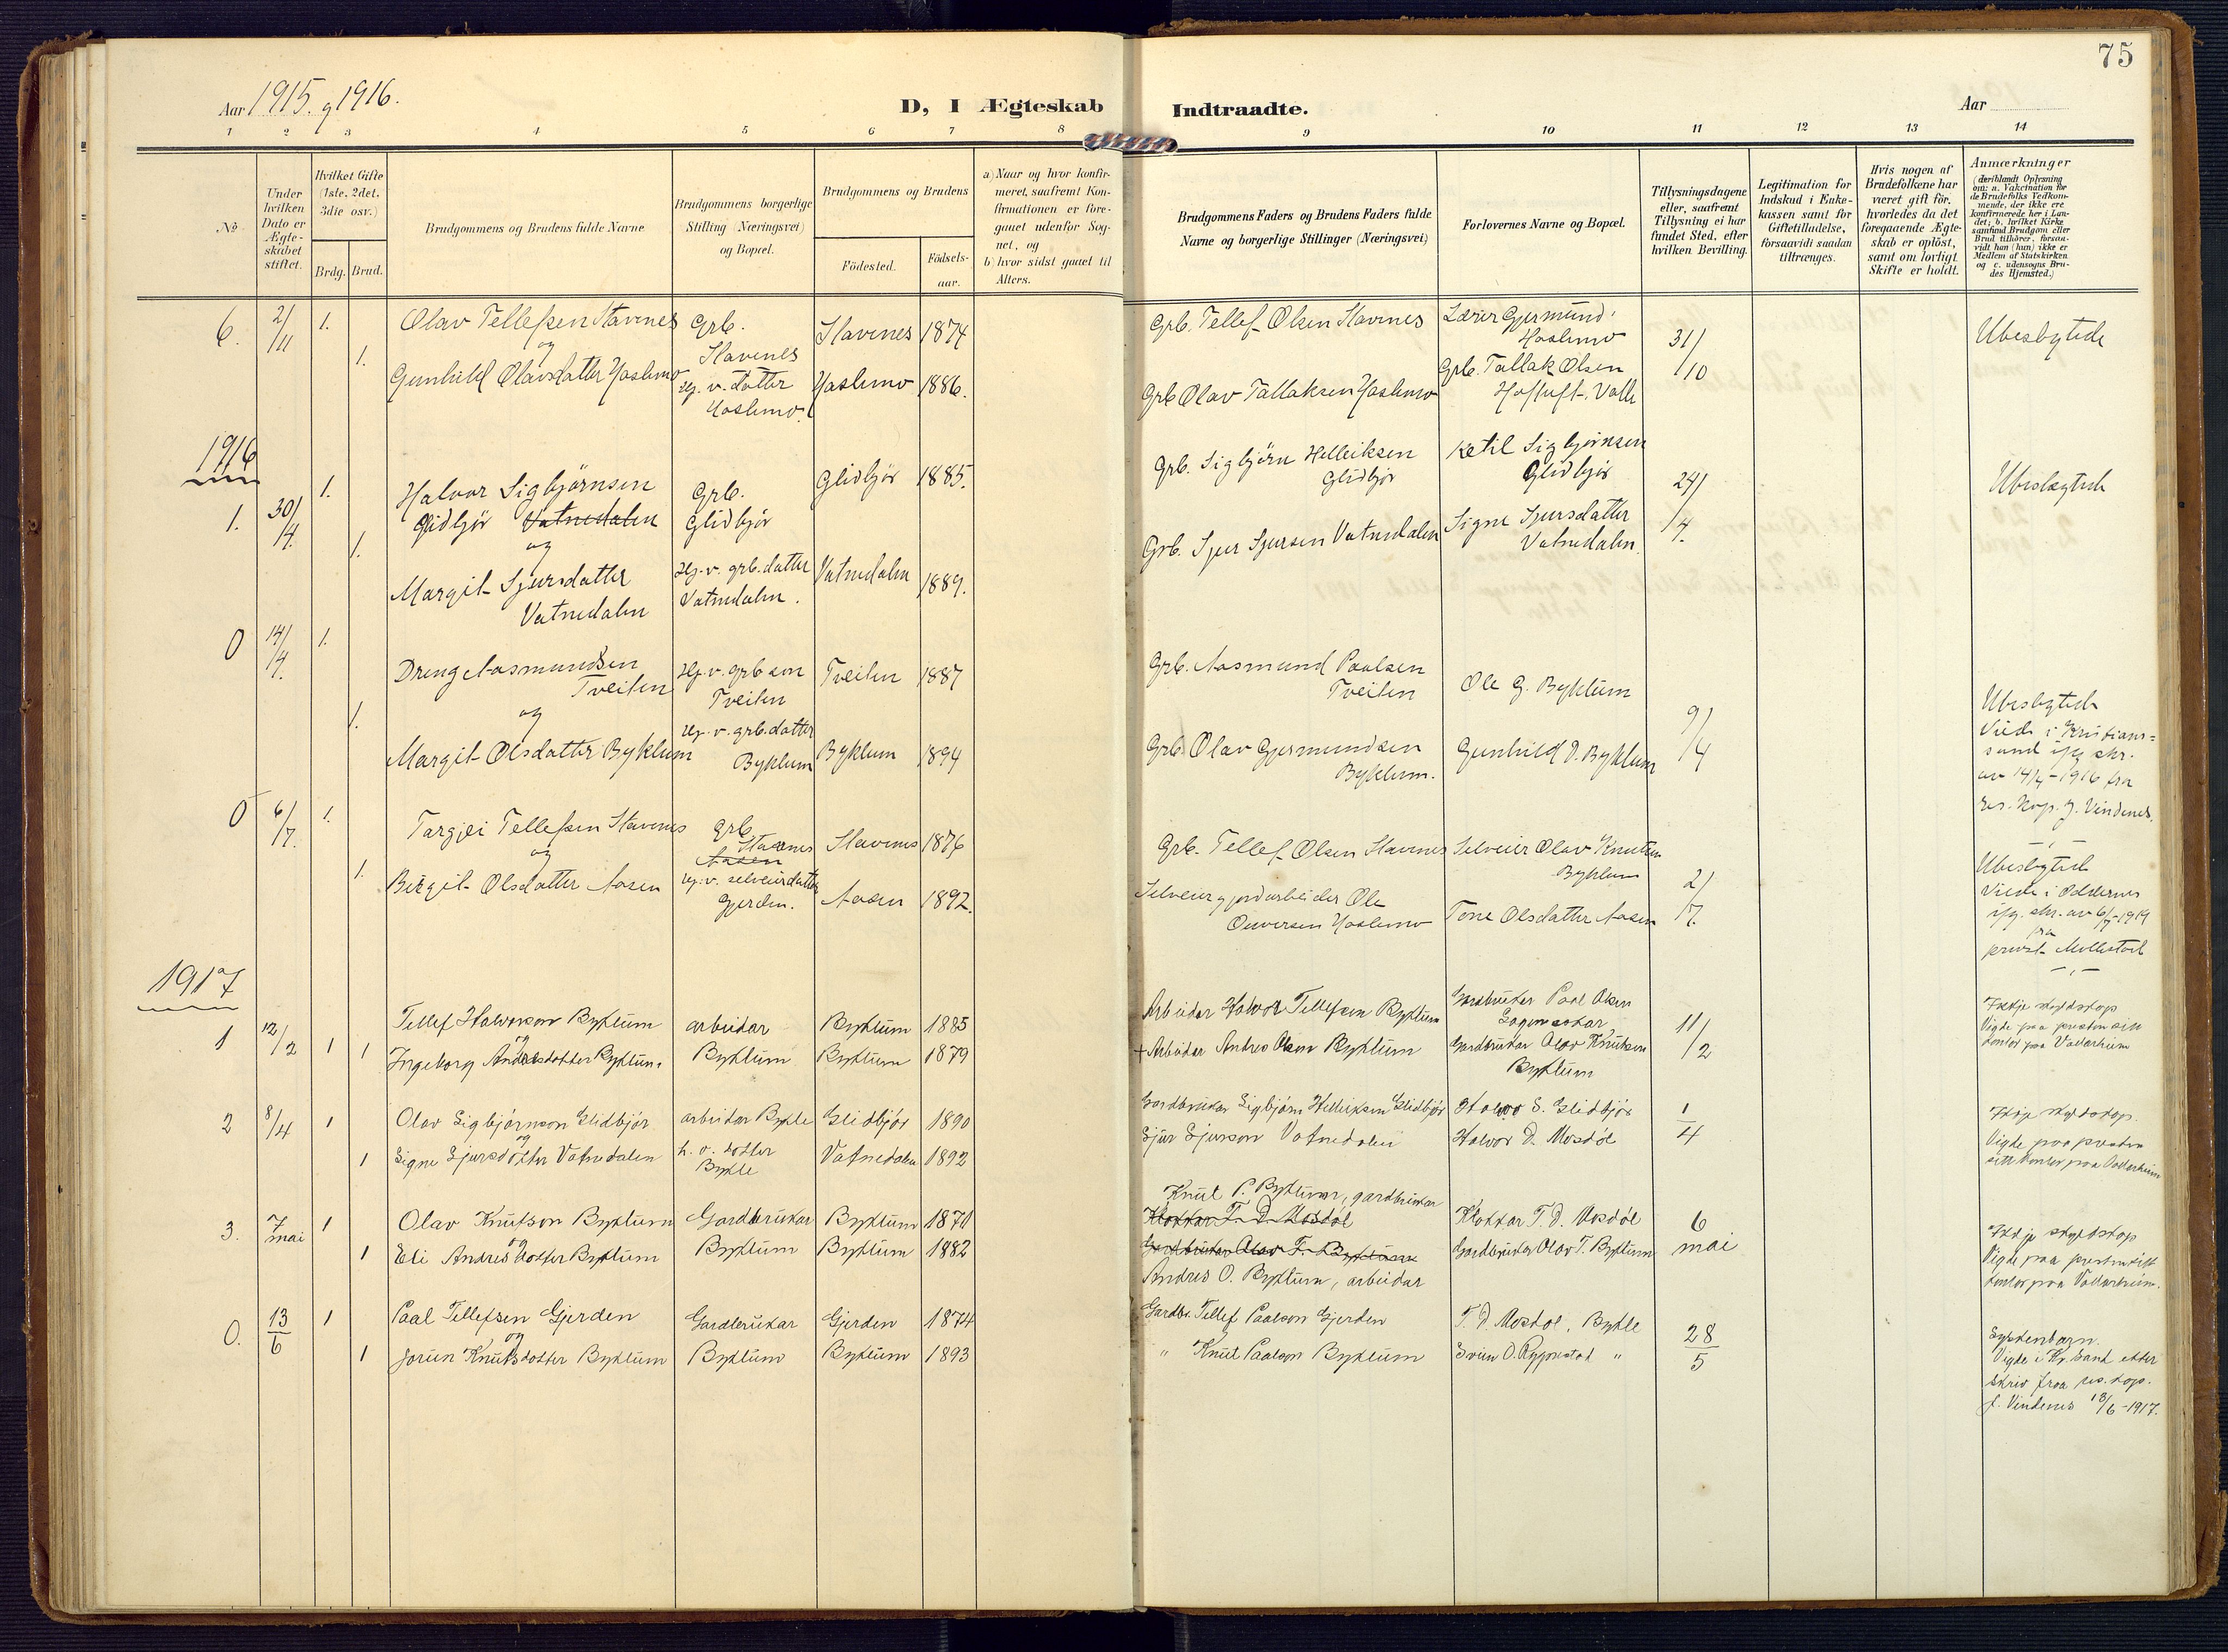 75
Aar 1915. og 1916.
D, I Ægteskab Indtraadte.
Aar
1 2 3 4 5 6 7 8 9 10 11 12 13 14
No
Under hvilken Dato er Ægte-skabet stiftet.
Hvilket Gifte (1ste, 2det, 3die osv.)
Brdg. Brud.
Brudgommens og Brudens fulde Navne
Brudgommens borgerlige Stilling (Næringsvei) og Bopæl.
Brudgommens og Brudens
Fødested.
Fødsels-aar.
a) Naar og hvor konfir-meret, saafremt Kon-firmationen er fore-gaaet udenfor Sog-net, og
b) hvor sidst gaaet til Alters.
Brudgommens Faders og Brudens Faders fulde Navne og borgerlige Stillinger (Næringsvei)
Forlovernes Navne og Bopæl.
Tillysningsdagene eller, saafremt Tillysning ei har fundet Sted, efter hvilken Bevilling.
Legitimation for Indskud i Enke-kassen samt for Giftetilladelse, forsaavidt saadan tiltrænges.
Hvis nogen af Brudefolkene har været gift før, hvorledes da det foregaaende Ægte-skab er opløst, samt om lovligt Skifte er holdt.
Anmærkninger (deriblandt Oplysning om: a. Vakcination for de Brudefolks Vedkom-mende, der ikke ere konfirmerede her i Lan-det; b. hvilket Kirke-samfund Brudgom eller Brud tilhører, forsaa-vidt han (hun) ikke er Medlem af Statskirken og c. udensogns Bru-des Hjemsted.)
6. 2/11 1. Olav Tellefsen Stavenes Grb. Stavenes Stavenes 1874 Grb. Tellef Olsen Stavenes Lærer Gjermund Hoslemo 31/10 Ubeslegtede
og
1. Gunhild Olavsdatter Hoslemo Hj. v. datter Hoslemo Hoslemo 1886. Grb Olav Tallaksen Hoslemo Grb. Tallak Olsen Valle
1916
1. 30/4. 1. Halvor Sigbjørnsen Glidbjør Vatnedalen Grb. Glidbjør Glidbjør 1885. Grb. Sigbjørn Helleiksen Glidbjør Ketil Sigbjørnsen Glidbjør 24/4. Ubeslegtede
og
1. Margit Sjursdatter Vatnedalen Hj. v. grb. datter Vatnedalen. Vatnedalen 1889. Grb. Sjur Sjursen Vatnedalen Signe Sjursdatter Vatnedalen
0 14/4. 1. Dreng Aasmundsen Tveiten Hj. v. grb son Tveiten Tveiten 1887 Grb. Aasmund Paalsen Tveiten Ole G. Byklum 9/4 Ubeslegtede
og
1. Margit Olsdatter Byklum Hj. v. grb. datter Byklum Byklum 1894 Grb. Olav Gjermundsen Byklum. Gunhild D. Byklum
Viede i Kristians=
sand ifg skr.
av 14/4 - 1916 fra
res. kap. J. Vindenes.
0 6/7. 1. Targjei Tellefsen Stavenes Grb. Stavenes Aasen Stavenes 1876 Grb. Tellef Olsen Stavenes Selveier Olav Knutsen Byklum 2/7. Ubeslegtede
og
1. Birgit Olsdatter Aasen Hj. v. selveierdatter Gjerden. Aasen 1892. Selveier og jordarbeider Ole Hoslemo Tone Olsdatter Aasen
Viede i Oddernes
ifg. skr. av 6/7-1919
fra
prost Mollestad
1917
1 12/2 1 Tellef Halvorson Byklum arbeidar Byklum 1885 Arbeidar Halvor Tellefsen Byklum Gardbrukar Paal Olsen 11/2 Ikkje skyldskap
og
1 Ingeborg Andresdotter Byklum. Byklum Byklum 1879 + Arbeidar Andres Olsen Byklum Gardbrukar Olav Knutsen Byklum
Vigde paa presten sin
kontor paa Valarheim
2 8/4 1 Olav Sigbjørnson Glidbjør arbeidar Bykle Glidbjør 1890 Gardbrukar Sigbjørn Helleiksen Glidbjør Halvor S. Glidbjør 1/4 Ikkje skyldskap.
og
1 Signe Sjursdotter Vatnedalen h. v. dotter Bykle Vatnedalen 1892 Sjur Sjurson Vatnedalen Halvor D. Mosdøl
Vigde paa presten
sitt kontor paa Valarheim
3. 7 mai 1 Olav Knutson Byklum Gardbrukar Byklum 1871 Knut P. Byklum, gardbrukar Klokkar T. D. Mosdøl Klokkar T. D. Mosdøl 6 mai Ikkje skyldskap
og
1 Eli Andresdotter Byklum Byklum Byklum 1882 Gardbrukar Olav T. Byklum Andres O. Byklum, arbeidar Gardbrukar Olav T. Byklum
Vigde paa presten sitt
kontor paa Valarheim.
0. 13/6 1 Paal Tellefsen Gjerden Gardbrukar Gjerden 1874 Gardbr. Tellef Paalson Gjerden T. D. Mosdøl, Bykle 28/5 Syskenbarn.
og
1 Jorun Knutsdotter Byklum Byklum Byklum 1893 " Knut Paalson Byklum Svein O. Rypestad "
Vigde i Kr.sand etter
skriv fraa res. kap.
J. Vindenes 13/6-1917.